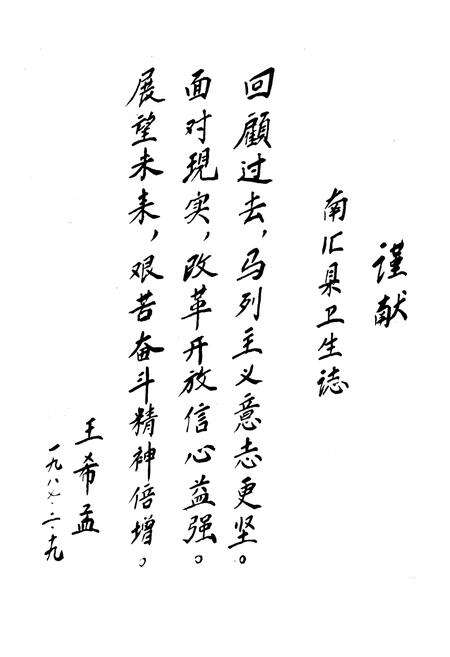 谨献
南汇县卫生誌
回顾过去，马列主义意志更坚。
面对现实，改革开放信心益强。
展望未来，艰苦奋斗精神倍增。
王希孟
一九八七.二.十九